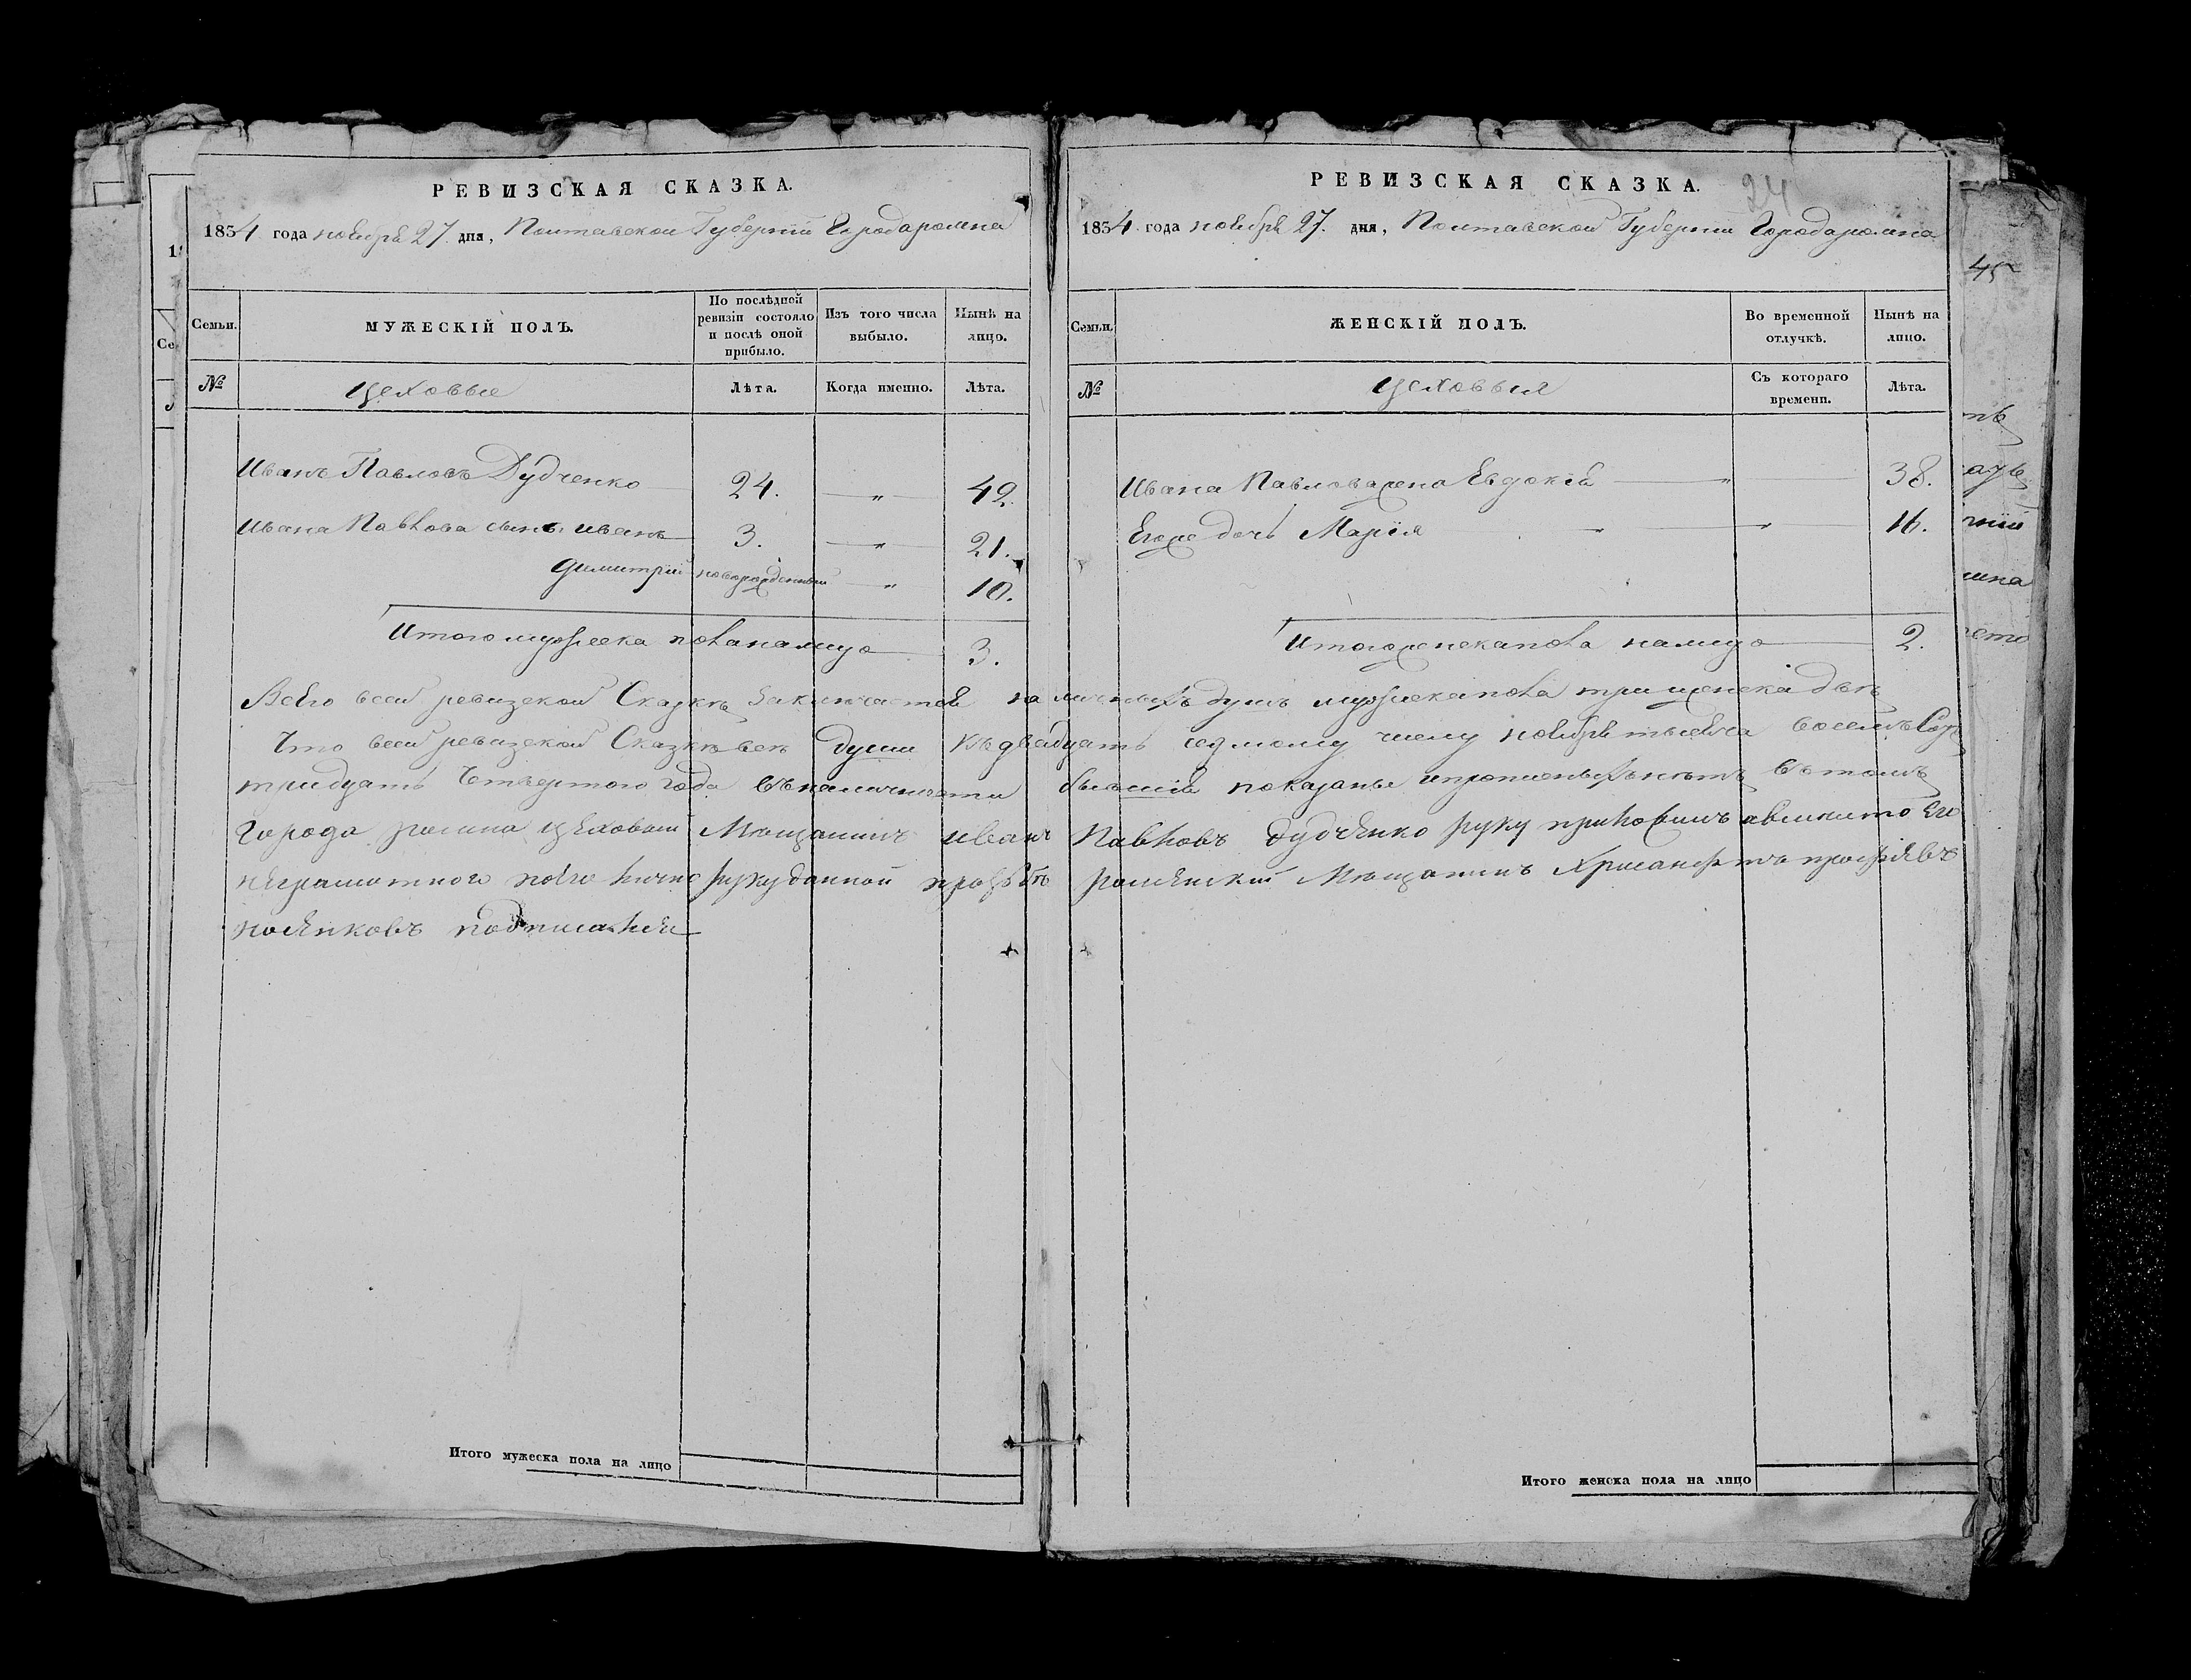 РЕВИЗСКАЯ СКАЗКА.
1834 года ноября 27. дня, Полтавской Губерніи Города ромна
Семьи.
МУЖЕСКІЙ ПОЛЪ.
По послѣдней ревизіи состояло и послѣ оной прибыло.
Изъ того числа выбыло.
Нынѣ на лицо.
№
Цеховые
Лѣта.
Когда именно.
Лѣта.
Иванъ Павловъ Дудченко 24. — „ — 42.
Ивана Павлова сынъ иванъ 3. — „ — 21.
Димитрій новорожденный — „ — 10.
Итого мужеска пола налицо 3.
РЕВИЗСКАЯ СКАЗКА.
24
1834 года ноября 27. дня, Полтавской Губерніи Города ромна
Семьи.
ЖЕНСКІЙ ПОЛЪ.
Во временной отлучкѣ.
Нынѣ на лицо.
№
Цеховыя
Съ котораго времени.
Лѣта.
Ивана Павлова жена Евдокія — „ — 38.
Егоже дочь Марія „ — „ 16.
Итого женска пола налицо 2.
Всего всей ревизской Сказкѣ Заключается наличныхъ душъ мужеска пола три женска двѣ
Что всей ревизской Сказкѣ всѣ души къ двадцать седмому числу ноября тысяча восемъ Сотъ
тридцать Четвертого года въ наличности бывшія показаны и прописныхъ нѣтъ въ томъ
города ромна цеховый Мещанинъ иванъ Павловъ Дудченко руку приложилъ а вмисто Его
неграмотного по Его личне рукуданной прозбѣ роменский Мещанинъ
подписался
Итого мужеска пола на лицо
Итого женска пола на лицо
45